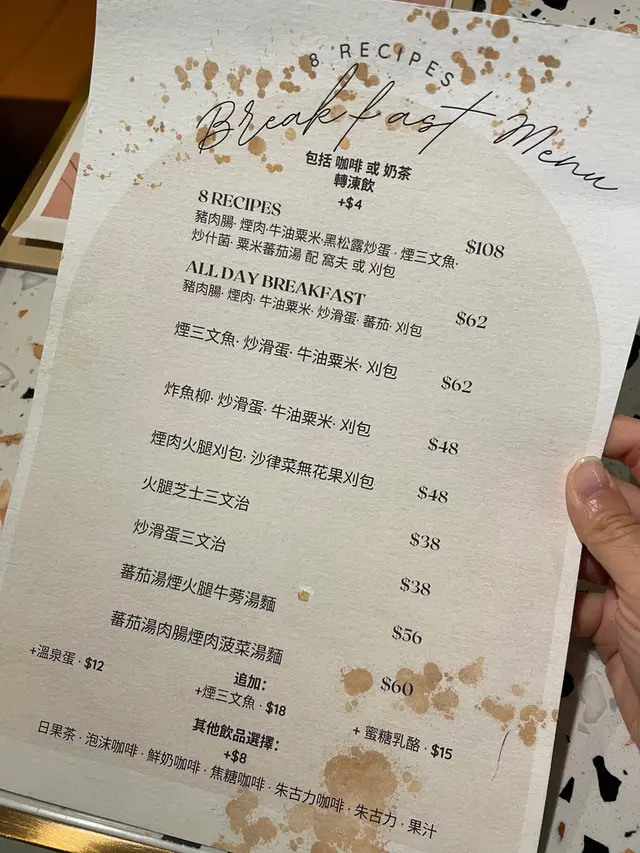 8 RECIPES
Breakfast Menu
包括 咖啡 或 奶茶
轉涷飲
+$4
8 RECIPES
豬肉腸· 煙肉·牛油粟米·黑松露炒蛋· 煙三文魚· $108
炒什菌· 粟米蕃茄湯 配 窩夫 或 刈包
ALL DAY BREAKFAST
豬肉腸· 煙肉· 牛油粟米· 炒滑蛋· 蕃茄· 刈包 $62
煙三文魚· 炒滑蛋· 牛油粟米· 刈包 $62
炸魚柳· 炒滑蛋· 牛油粟米· 刈包 $48
煙肉火腿刈包· 沙律菜無花果刈包 $48
火腿芝士三文治 $38
炒滑蛋三文治 $38
蕃茄湯煙火腿牛蒡湯麵 $56
蕃茄湯肉腸煙肉菠菜湯麵 $60
追加：
+溫泉蛋 · $12 +煙三文魚 · $18 + 蜜糖乳酪 · $15
其他飲品選擇：
+$8
日果茶 · 泡沫咖啡 · 鮮奶咖啡 · 焦糖咖啡 · 朱古力咖啡 · 朱古力 · 果汁